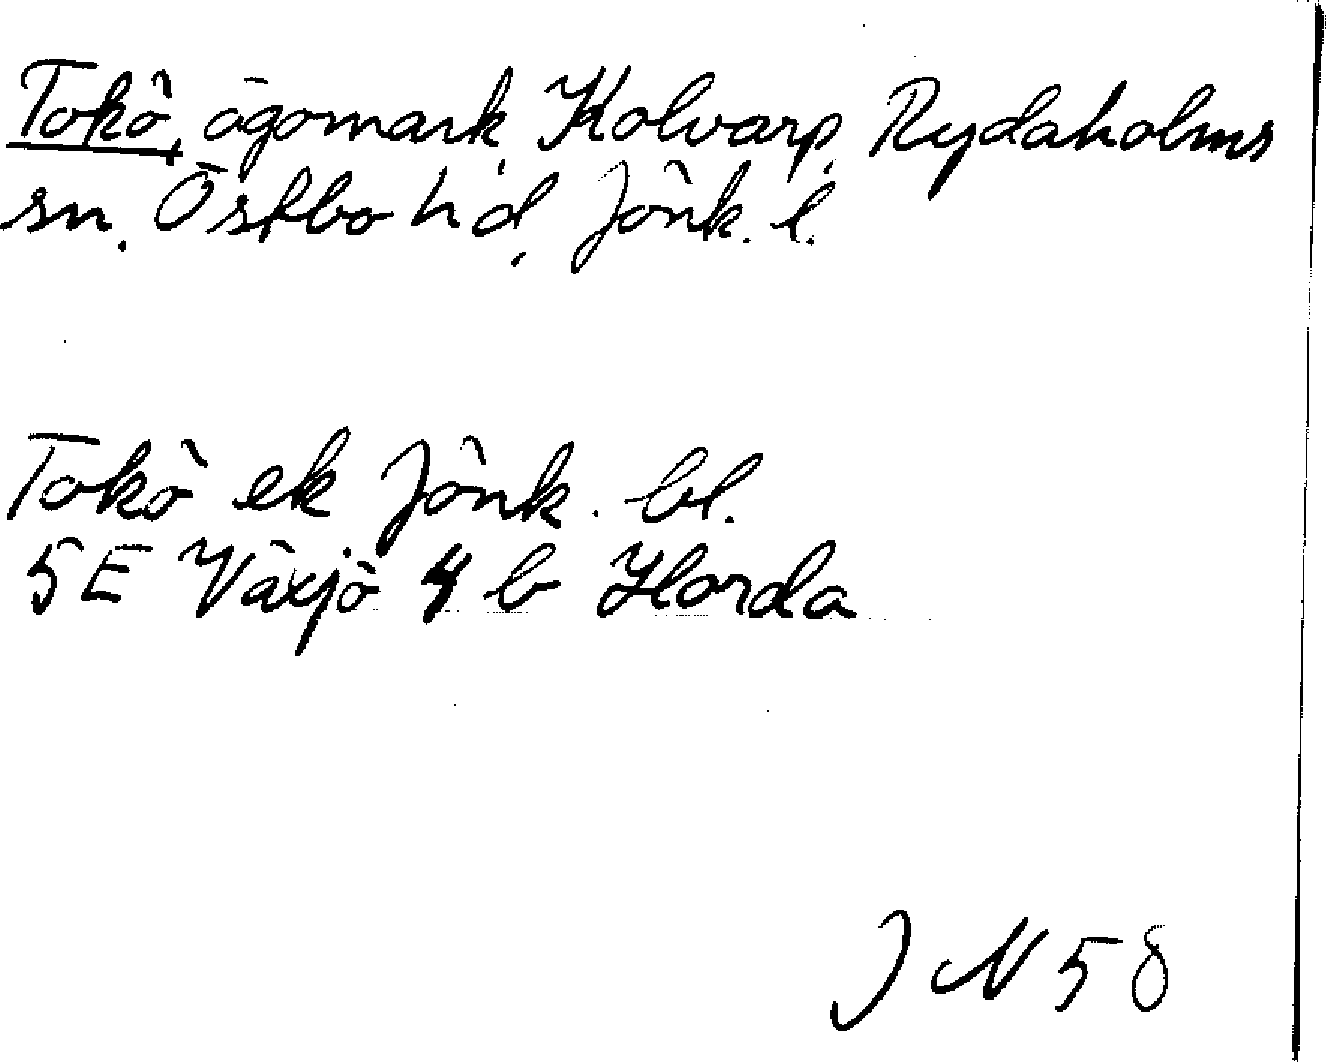 Tokö, ägomark, Kolvarp, Rydaholms
sn. Östbo hd, Jönk. l.
Tokö ek Jönk. bl.
5E Växjö 4 b Horda
J N 58